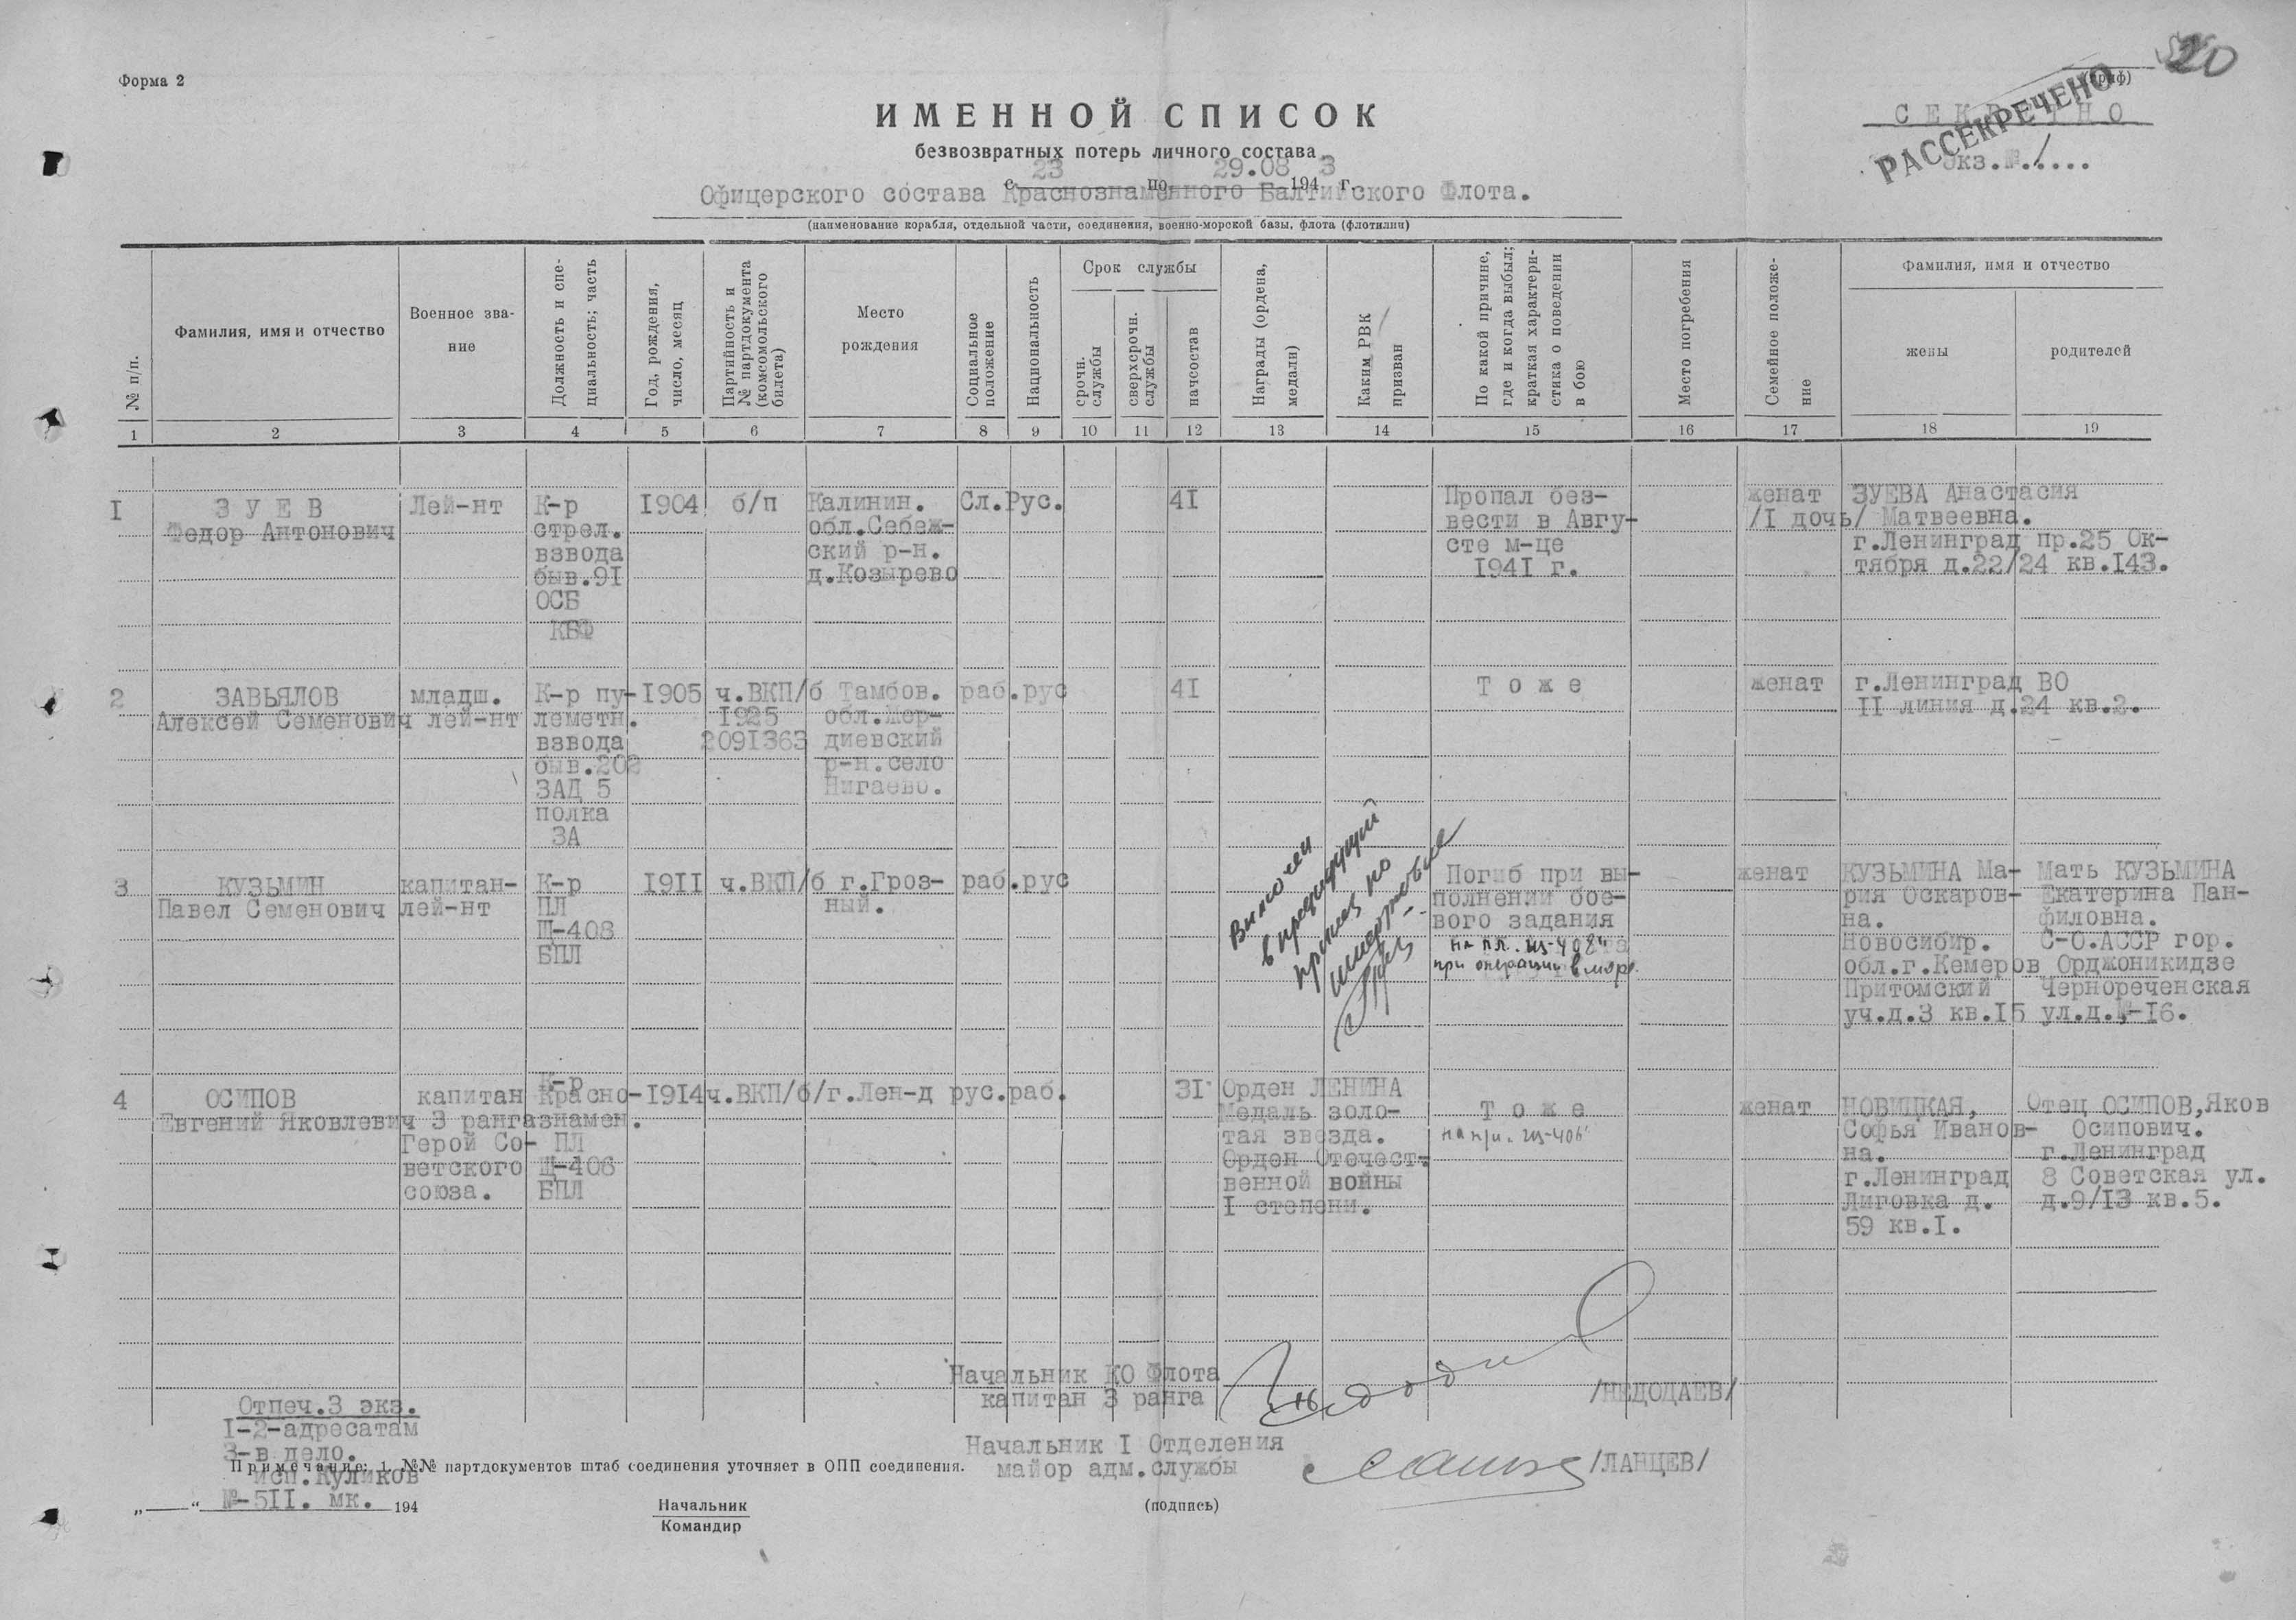 Форма 2
20
(гриф)
СЕКРЕТНО
РАССЕКРЕЧЕНО
Экз.№.1...
ИМЕННОЙ СПИСОК
безвозвратных потерь личного состава
с 23 по 29.08 1943 г.
Офицерского состава Краснознаменного Балтийского Флота.
(наименование корабля, отдельной части, соединения, военно-морской базы, флота (флотилии)
№ п/п.
Фамилия, имя и отчество
Военное зва-
ние
Должность и спе-
циальность; часть
Год, рождения,
число, месяц
Партийность и
№ партдокумента
(комсомольского
билета)
Место
рождения
Социальное
положение
Национальность
Срок службы
срочн.
службы
сверхсрочн.
службы
начсостав
Награды (ордена,
медали)
Каким РВК
призван
По какой причине,
где и когда выбыл;
краткая характери-
стика о поведении
в бою
Место погребения
Семейное положе-
ние
Фамилия, имя и отчество
жены
родителей
1 2 3 4 5 6 7 8 9 10 11 12 13 14 15 16 17 18 19
I
ЗУЕВ
Федор Антонович
Лей-нт
К-р
стрел.
взвода
быв.91
ОСБ
КБФ
I904
б/п
Калинин.
обл.Себеж-
ский р-н.
д.Козырево
Сл.
Рус.
4I
Пропал без-
вести в Авгу-
сте м-це
I94I г.
женат
/I дочь/
ЗУЕВА Анастасия
Матвеевна.
г.Ленинград пр.25 Ок-
тября д.22/24 кв.I43.
2
ЗАВЬЯЛОВ
Алексей Семенович
младш.
лей-нт
К-р пу-
леметн.
взвода
быв.202
ЗАД 5
полка
ЗА
I905
ч.ВКП/б
I925
209I363
Тамбов.
обл.Мор-
диевский
р-н.село
Нигаево.
раб.
рус
4I
Тоже
женат
г.Ленинград ВО
II линия д.24 кв.2.
3
КУЗЬМИН
Павел Семенович
капитан-
лей-нт
К-р
ПЛ
Щ-408
БПЛ
I9II
ч.ВКП/б
г.Гроз-
ный.
раб.
рус
Включен
в предыдущий
приказ по
Погиб при вы-
полнении бое-
вого задания
на пл. Щ-408"
при операции в море.
женат
КУЗЬМИНА Ма-
рия Оскаров-
на.
Новосибир.
обл.г.Кемеров
Притомский
уч.д.3 кв.I5
Мать КУЗЬМИНА
Екатерина Пан-
филовна.
С-О.АССР гор.
Орджоникидзе
Чернореченская
ул.д.№-I6.
4
ОСИПОВ
Евгений Яковлевич
капитан
3 ранга
Герой Со-
ветского
союза.
К-р
Красно-
знамен.
ПЛ
Щ-406
БПЛ
I9I4
ч.ВКП/б/
г.Лен-д
рус.
раб.
3I
Орден ЛЕНИНА
Медаль золо-
тая звезда.
Орден Отечест-
венной войны
I степени.
Тоже
на пл. Щ-406"
женат
НОВИЦКАЯ,
Софья Иванов-
на.
г.Ленинград
Лиговка д.
59 кв.I.
Отец ОСИПОВ,Яков
Осипович.
г.Ленинград
8 Советская ул.
д.9/I3 кв.5.
Начальник КО Флота
капитан 3 ранга
/НЕДОДАЕВ/
Начальник I Отделения
майор адм.службы
/ЛАНЦЕВ/
Отпеч.3 экз.
I-2-адресатам
3-в дело.
исп.Куликов
№-5II. мк.
Примечание: 1. №№ партдокументов штаб соединения уточняет в ОПП соединения.
„ “ 194
Начальник
Командир
(подпись)